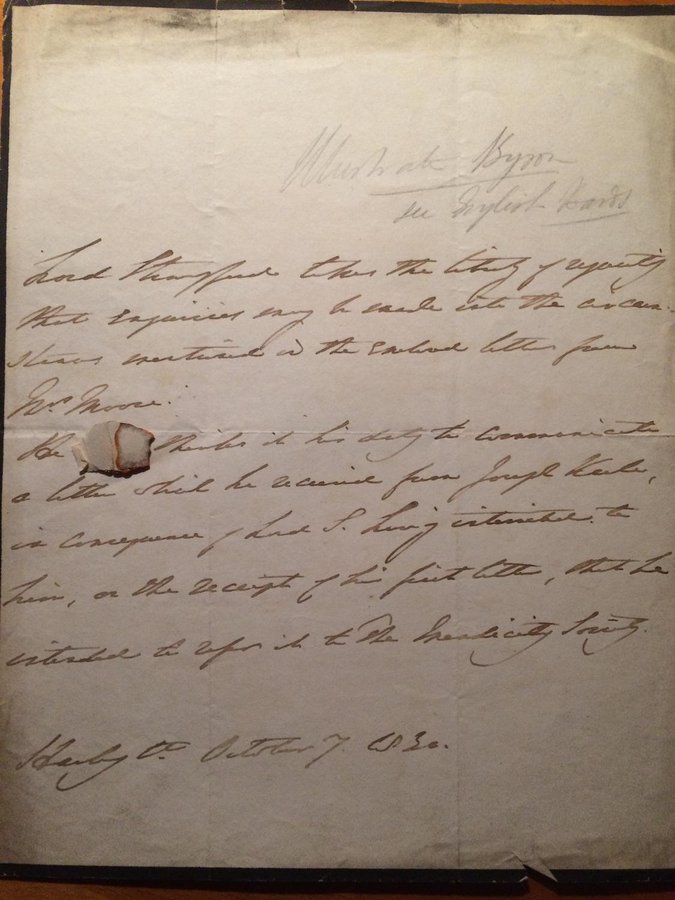 Illustrate Byron
see English Bards
Lord Strangford takes the liberty of requesting
that enquiries may be made into the circum-
stances mentioned in the enclosed letter from
Mrs Moore.
He thinks it his duty to communicate
a letter which he received from Joseph
in consequence of Lord S. having intimated to
him, on the receipt of his first letter, that he
intended to refer it to the Mendicity Society.
Harley St. October 7. 1830.